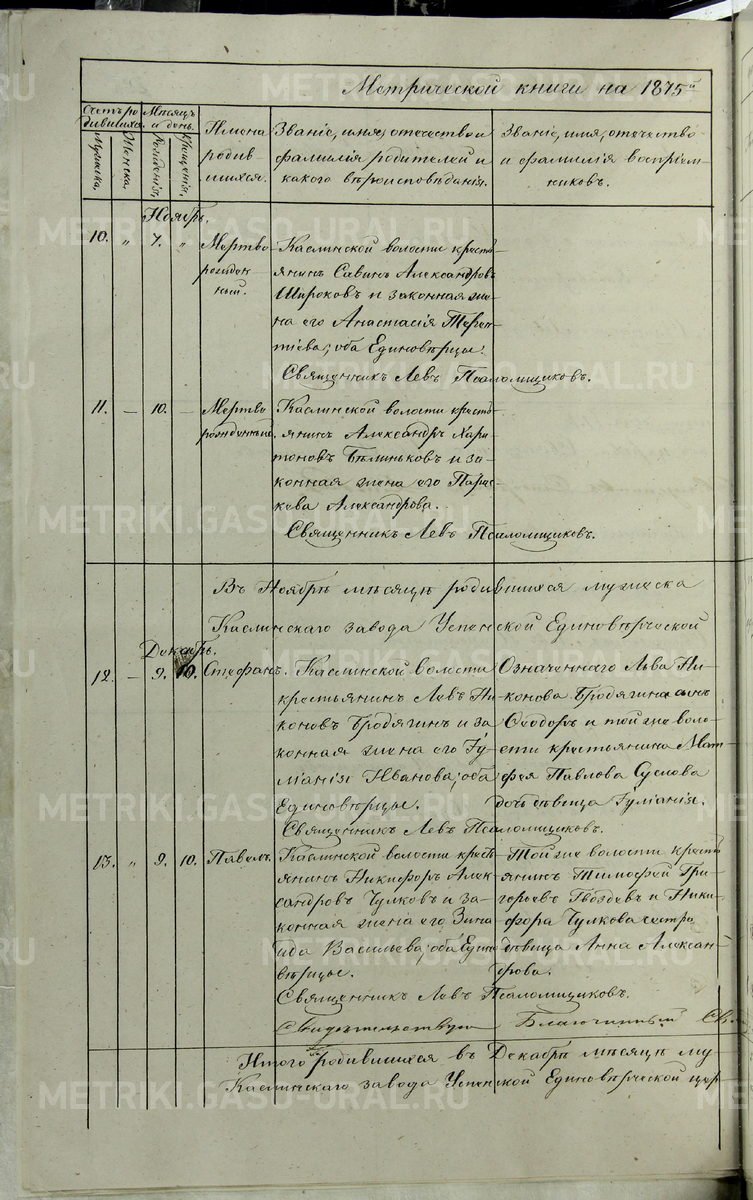 Метрической книги на 1875й
Счетъ родившихся.
Мужеска.
Женска.
Мѣсяцъ и день.
Рожденія.
Крещенія.
Имена
родив-
шихся.
Званіе, имя, отечество и
фамилія родителей и
какого вѣроисповѣданія.
Званіе, имя, отечество
и фамилія воспріем-
никовъ.
Ноябрь.
10. " 7. "
Мертво
рожден-
ный.
Каслинской волости кресть
янинъ Савинъ Александровъ
Широковъ и законная же-
на его Анастасія Терен-
тіева; оба Единовѣрцы.
Священникъ Левъ Псаломщиковъ.
11. — 10. —
Мертво
рожденный.
Каслинской волости кресть
янинъ Александръ Хари-
тоновъ Бѣлиньковъ и за-
конная жена его Парас-
кева Александрова.
Священникъ Левъ Псаломщиковъ.
Въ Ноябрѣ мѣсяцѣ родившихся мужеска
Каслинскаго завода Успенской Единовѣрческой
Декабрь.
12. — 9. 10.
Стефанъ.
Каслинской волости
крестьянинъ Левъ Ни-
коновъ Бродягинъ и за
конная жена его Іу-
ліанія Иванова; оба
Единовѣрцы.
Означеннаго Льва Ни-
конова Бродягина сынъ
Ѳеодоръ и той же воло-
сти крестьянина Мат-
фея Павлова Суслова
дочь дѣвица Іуліанія.
Священникъ Левъ Псаломщиковъ.
13. " 9. 10.
Павелъ.
Каслинской волости кресть
янинъ Никифоръ Алек-
сандровъ Чулковъ и за-
конная жена его Зина
ида Васильева; оба Едино
вѣрцы.
Той же волости кресть
янинъ Тимофей Гри-
горьевъ Гвоздевъ и Ники-
фора Чулкова сестра
дѣвица Анна Алексан-
дрова.
Священникъ Левъ Псаломщиковъ.
Свидѣтельствую Благочинный Св
Итого родившихся въ Декабрѣ мѣсяцѣ му
Каслинскаго завода Успенской Единовѣрческой цер
METRIKI.GASO-URAL.RU